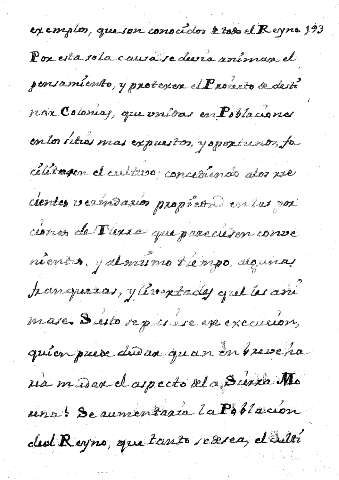 exemplos, que son conocidos de todo el Reyno 193
Por esta sola causa se devia animar el
pensamiento, y protexer el Proiecto de desti
nar Colonias, que unidas en Poblaciones
en los sitios mas expuestos, y oportunos, fa
cilitasen el cultivo; concediendo a los re
cientes vecindarios propiedad en las por
ciones de Tierra que pareciesen conve
nientes, y al mismo tiempo, algunas
franquezas, y livertades que les ani
mase. Si esto se pusiese en execucion,
quien puede dudar quan en breve ha
ria mudar el aspecto de la Sierra Mo
rena? Se aumentaria la Poblacion
del Reyno, que tanto se desea, el culti